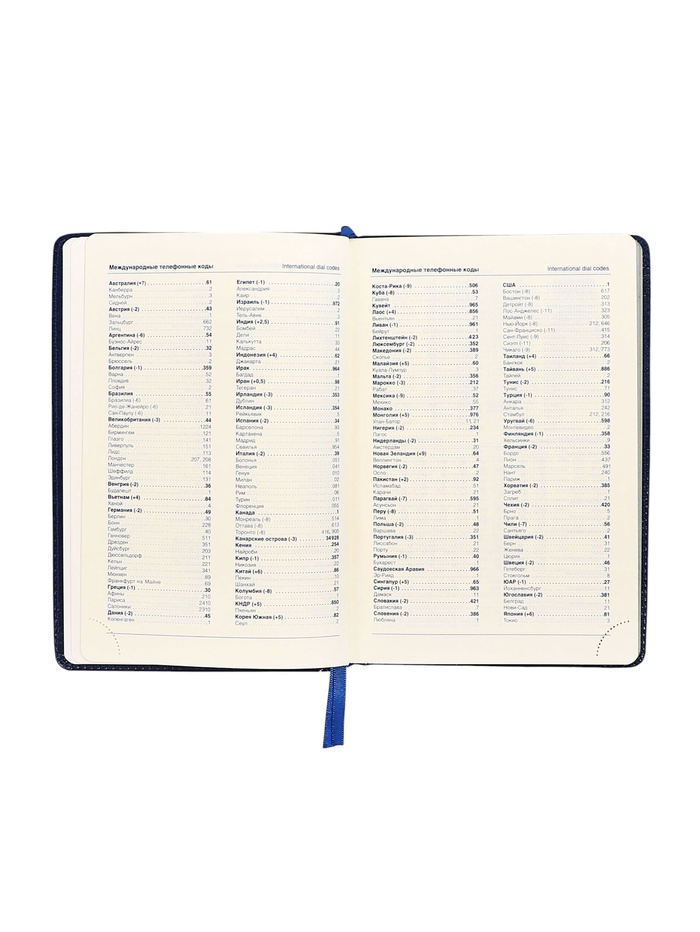 Международные телефонные коды International dial codes
Австралия (+7) 61
Канберра 2
Мельбурн 3
Сидней 2
Австрия (-2) 43
Вена
Зальцбург 662
Линц 732
Аргентина (-6) 54
Буэнос-Айрес 11
Бельгия (-2) 32
Антверпен 3
Брюссель 2
Болгария (-1) 359
Варна 52
Пловдив 32
София 2
Бразилия 55
Бразилиа (-6) 61
Рио-де-Жанейро (-6) 21
Сан-Паулу (-6) 11
Великобритания (-3) 44
Абердин 1224
Бирмингем 121
Глазго 141
Ливерпуль 151
Лидс 113
Лондон 207, 208
Манчестер 161
Шеффилд 114
Эдинбург 131
Венгрия (-2) 36
Будапешт 1
Вьетнам (+4) 84
Ханой 4
Германия (-2) 49
Берлин 30
Бонн 228
Гамбург 40
Ганновер 511
Дрезден 351
Дуйсбург 203
Дюссельдорф 211
Кельн 221
Лейпциг 341
Мюнхен 89
Франкфурт на Майне 69
Греция (-1) 30
Афины 210
Лариса 2410
Салоники 2310
Дания (-2) 45
Копенгаген
Египет (-1) 20
Александрия
Каир
Израиль (-1) 972
Иерусалим 2
Тель-Авив 3
Индия (+2,5) 91
Бомбей 22
Дели
Калькутта 33
Мадрас
Индонезия (+4) 62
Джакарта 21
Ирак 964
Багдад
Иран (+0,5) 98
Тегеран 21
Ирландия (-3) 353
Дублин 1
Исландия (-3) 354
Рейкьявик 5
Испания (-2) 34
Барселона 93
Картахена
Мадрид 91
Севилья
Италия (-2) 39
Болонья 051
Венеция 041
Генуя 010
Милан 02
Неаполь 081
Рим 06
Турин 011
Флоренция 055
Канада 1
Монреаль (-8) 514
Оттава (-8) 613
Торонто (-8) 416, 905
Канарские острова (-3) 34928
Кения 254
Найроби 20
Кипр (-1) 357
Никозия 22
Китай (+6) 86
Пекин 10
Шанхай 21
Колумбия (-8) 57
Богота
КНДР (+5) 850
Пхеньян
Корея Южная (+5) 82
Сеул 2
Международные телефонные коды International dial codes
Коста-Рика (-9) 506
Куба (-8) 53
Гавана 7
Кувейт 965
Лаос (+4) 856
Вьентьян 21
Ливан (-1) 961
Бейрут 1
Лихтенштейн (-2) 423
Люксембург (-2) 352
Македония (-2) 389
Скопье
Малайзия (+5) 60
Куала-Лумпур 3
Мальта (-2) 356
Марокко (-3) 212
Рабат 37
Мексика (-9) 52
Мехико 55
Монако 377
Монголия (+5) 976
Улан-Батор 11, 21
Нигерия (-2) 234
Лагос
Нидерланды (-2) 31
Амстердам 20
Новая Зеландия (+9) 64
Веллингтон 4
Норвегия (-2) 47
Осло 2
Пакистан (+2) 92
Исламабад 51
Карачи 21
Парагвай (-7) 595
Асунсьон 21
Перу (-8) 51
Лима 1
Польша (-2) 48
Варшава 22
Португалия (-3) 351
Лиссабон 21
Порту 22
Румыния (-1) 40
Бухарест 1
Саудовская Аравия 966
Эр-Рияд 1
Сингапур (+5) 65
Сирия (-1) 963
Дамаск 11
Словакия (-2) 421
Братислава
Словения (-2) 386
Любляна 1
США 1
Бостон (-8) 617
Вашингтон (-8) 202
Детройт (-8) 313
Лос-Анджелес (-11) 323
Майами (-8) 305
Нью-Йорк (-8) 212, 646
Сан-Франциско (-11) 415
Сент-Луис (-9) 314
Сиэтл (-11) 206
Чикаго (-9) 312, 773
Таиланд (+4) 66
Бангкок 2
Тайвань (+5) 886
Тайпей 2
Тунис (-2) 216
Тунис 71
Турция (-1) 90
Анкара 312
Анталья 242
Стамбул 212, 216
Уругвай (-6) 598
Монтевидео 2
Финляндия (-1) 358
Хельсинки 9
Франция (-2) 33
Бордо 556
Лион 437
Марсель 491
Нант 240
Париж 1
Хорватия (-2) 385
Загреб 1
Сплит 21
Чехия (-2) 420
Брно 5
Прага 2
Чили (-7) 56
Сантьяго 2
Швейцария (-2) 41
Берн 31
Женева 22
Цюрих 1
Швеция (-2) 46
Гетеборг 31
Стокгольм 8
ЮАР (-1) 27
Йоханнесбург 11
Югославия (-2) 381
Белград 11
Нови-Сад 21
Япония (+6) 81
Токио 3